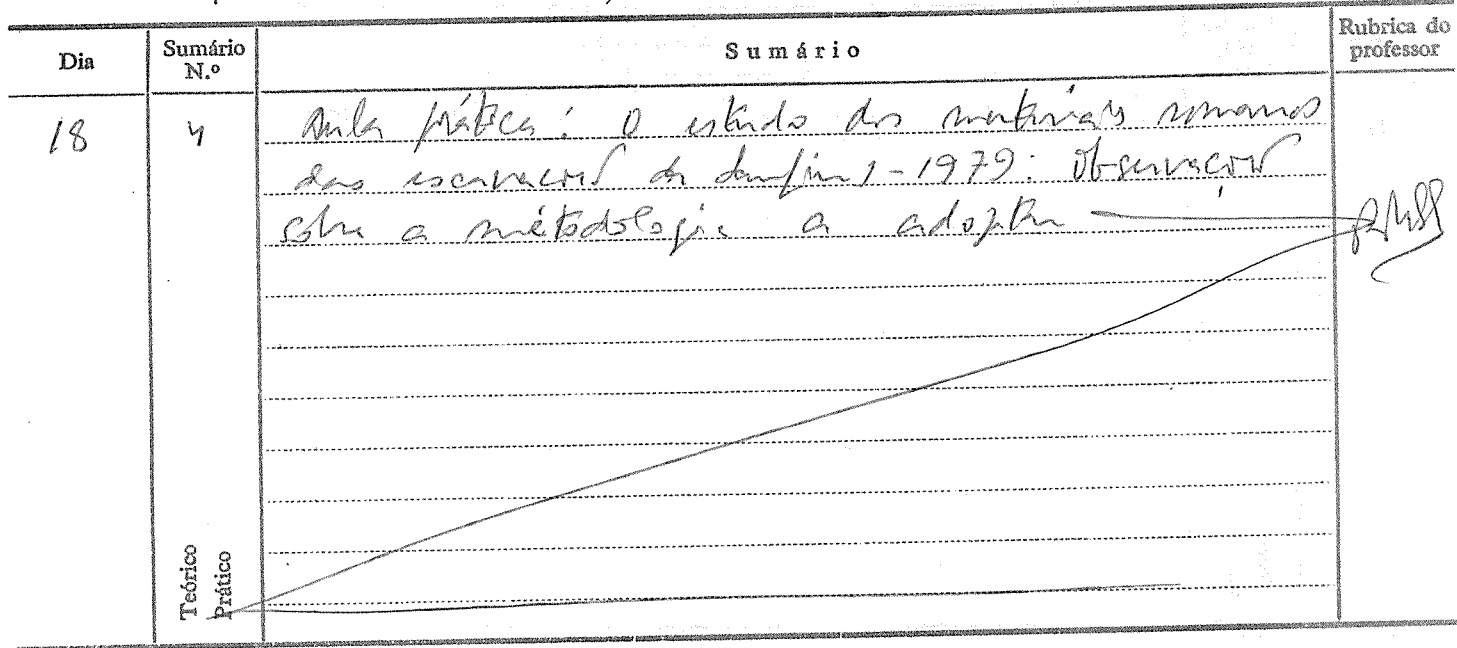 Dia
Sumário N.º
Sumário
Rubrica do professor
18
4
Aula prática: O estudo dos materiais romanos
das escavações de 1-1979: Observações
sobre a métodologia a adoptar
Teórico
Prático